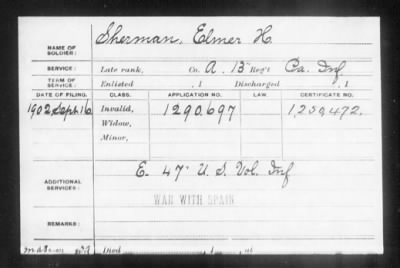 NAME OF SOLDIER: Sherman, Elmer H.
SERVICE: Late rank, Co. A. 15 Reg't Pa. Inf
TERM OF SERVICE: Enlisted , 1 Discharged , 1
DATE OF FILING. CLASS. APPLICATION NO. LAW. CERTIFICATE NO.
1902 Sept 16 Invalid, 1290.697
Widow,
Minor,
ADDITIONAL SERVICES: E. 47" U.S. Vol. Inf
WAR WITH SPAIN
REMARKS:
Died , 1 , at